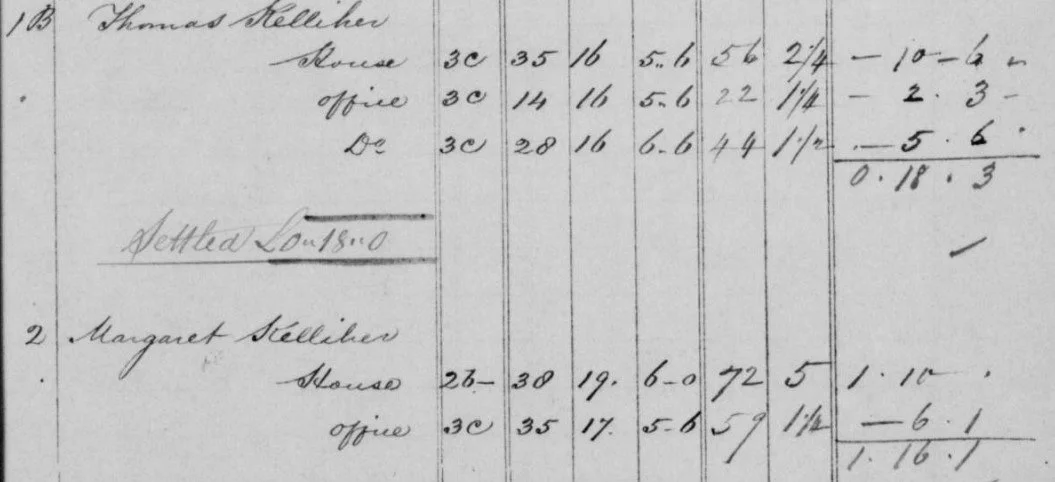 1B Thomas Kelliher
House 3C 35 16 5.6 56 2 1/4 — 10 — 6
office 3C 14 16 5.6 22 1 1/4 — 2 . 3 —
Do 3C 28 16 6.6 44 1 1/2 — 5 . 6
0 . 18 . 3
Settled £0"18"0
2 Margaret Kelliher
House 2b— 38 19. 6-0 72 5 1 . 10 .
office 3C 35 17. 5-6 59 1 1/4 — 6 . 1
1 . 16 . 1